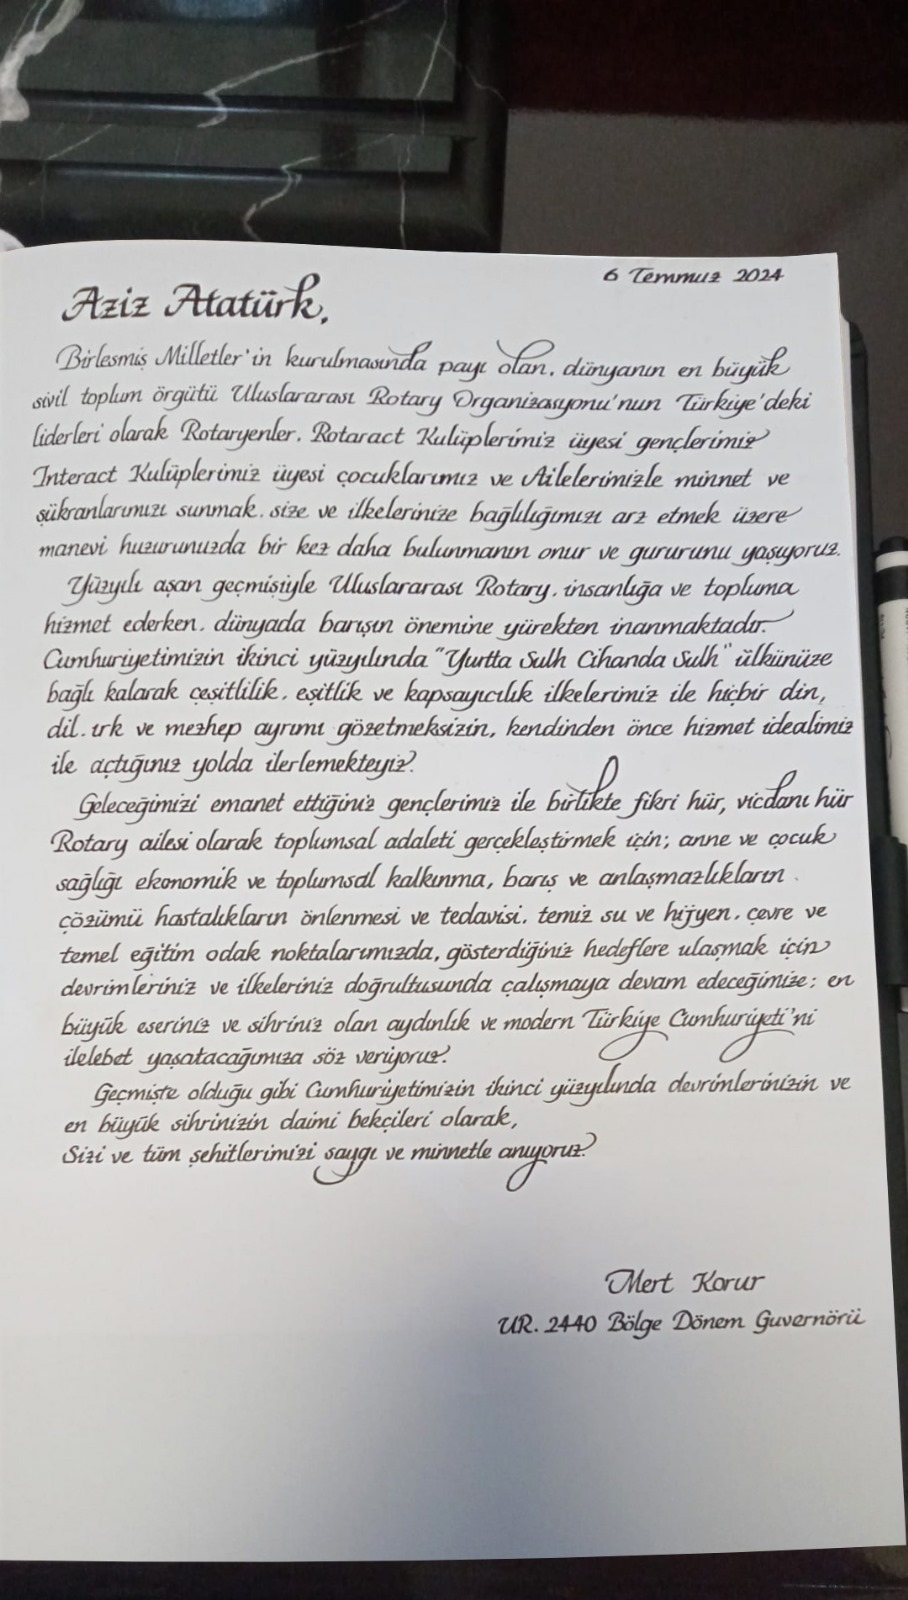 6 Temmuz 2024
Aziz Atatürk,
Birleşmiş Milletler'in kurulmasında payı olan, dünyanın en büyük
sivil toplum örgütü Uluslararası Rotary Organizasyonu'nun Türkiye'deki
liderleri olarak Rotaryenler, Rotaract Kulüplerimiz üyesi gençlerimiz
Interact Kulüplerimiz üyesi çocuklarımız ve Ailelerimizle minnet ve
şükranlarımızı sunmak, size ve ilkelerinize bağlılığımızı arz etmek üzere
manevi huzurunuzda bir kez daha bulunmanın onur ve gururunu yaşıyoruz.
Yüzyılı aşan geçmişiyle Uluslararası Rotary, insanlığa ve topluma
hizmet ederken, dünyada barışın önemine yürekten inanmaktadır.
Cumhuriyetimizin ikinci yüzyılında "Yurtta Sulh Cihanda Sulh" ülkünüze
bağlı kalarak çeşitlilik, eşitlik ve kapsayıcılık ilkelerimiz ile hiçbir din,
dil, ırk ve mezhep ayrımı gözetmeksizin, kendinden önce hizmet idealimiz
ile açtığınız yolda ilerlemekteyiz.
Geleceğimizi emanet ettiğiniz gençlerimiz ile birlikte fikri hür, vicdanı hür
Rotary ailesi olarak toplumsal adaleti gerçekleştirmek için; anne ve çocuk
sağlığı ekonomik ve toplumsal kalkınma, barış ve anlaşmazlıkların
çözümü hastalıkların önlenmesi ve tedavisi, temiz su ve hijyen, çevre ve
temel eğitim odak noktalarımızda, gösterdiğiniz hedeflere ulaşmak için
devrimleriniz ve ilkeleriniz doğrultusunda çalışmaya devam edeceğimize; en
büyük eseriniz ve sihriniz olan aydınlık ve modern Türkiye Cumhuriyeti'ni
ilelebet yaşatacağımıza söz veriyoruz.
Geçmişte olduğu gibi Cumhuriyetimizin ikinci yüzyılında devrimlerinizin ve
en büyük sihrinizin daimi bekçileri olarak,
Sizi ve tüm şehitlerimizi saygı ve minnetle anıyoruz.
Mert Korur
UR. 2440 Bölge Dönem Guvernörü